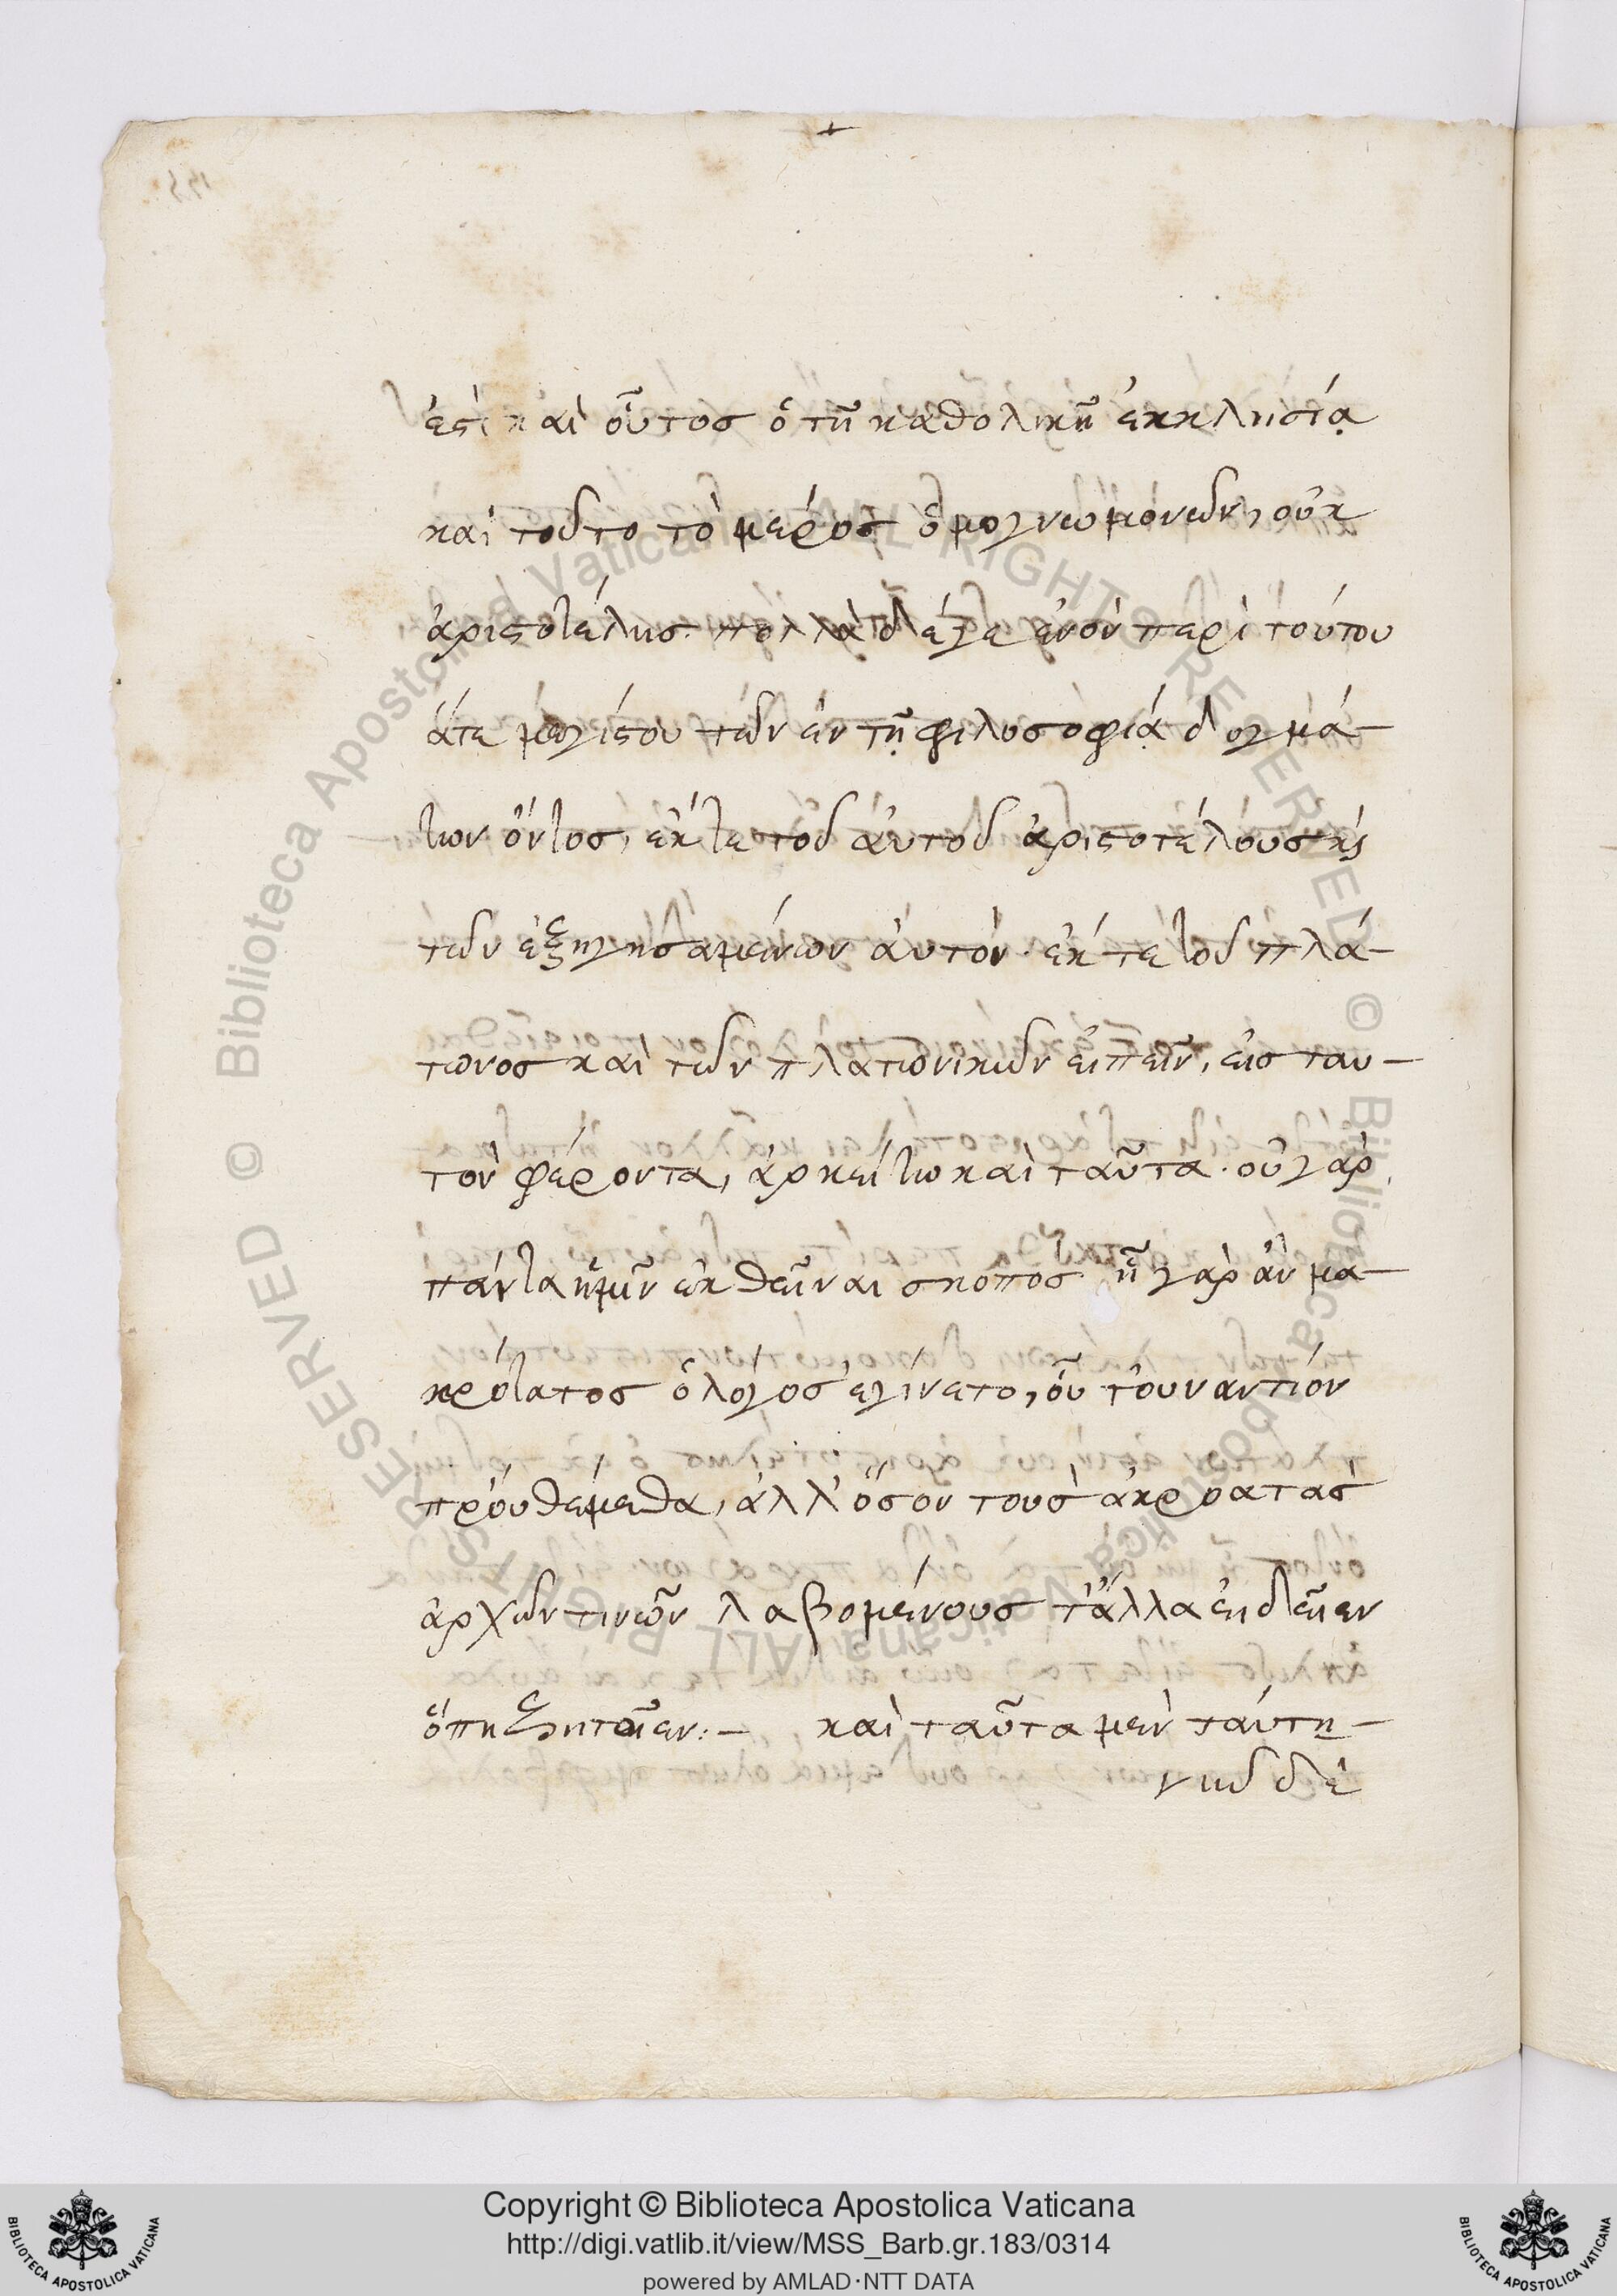 ἐστὶ καὶ οὗτος ὁ τῇ καθολικῇ ἐκκλησίᾳ
καὶ τοῦτο τὸ μέρος ὁμογνωμόνων, οὐκ
ἀριστοτέλης. πολλὰ δέ γε ἐνὸν περὶ τούτου
ἅτε μεγίστου τῶν ἐν τῇ φιλοσοφίᾳ δογμά-
των ὄντος, ἔκ τε τοῦ αὐτοῦ ἀριστοτέλους κὶ
τῶν ἐξηγησαμένων αὐτόν. ἔκ τε τοῦ πλά-
τωνος καὶ τῶν πλατωνικῶν εἰπεῖν, εἰς ταυ-
τὸν φέροντα, ἀρκείτω καὶ ταῦτα. οὐ γὰρ
πάντα ἡμῖν ἐκθεῖναι σκοπος ἦ γὰρ ἂν μα-
κρότατος ὁ λόγος ἐγίνετο, οὗ τοὐναντίον
προὐθέμεθα, ἀλλ' ὅσον τοὺς ἀκροατὰς
ἀρχῶν τινῶν λαβομένους τἄλλα εἰδεῖεν
ὅπη ζητοῖεν:- καὶ ταῦτα μὲν ταύτῃ-
νῦν δὲ
Copyright © Biblioteca Apostolica Vaticana
http://digi.vatlib.it/view/MSS_Barb.gr.183/0314
powered by AMLAD·NTT DATA
BIBLIOTECA APOSTOLICA VATICANA
BIBLIOTECA APOSTOLICA VATICANA
© Biblioteca Apostolica Vaticana ALL RIGHTS RESERVED
© Biblioteca Apostolica Vaticana ALL RIGHTS RESERVED